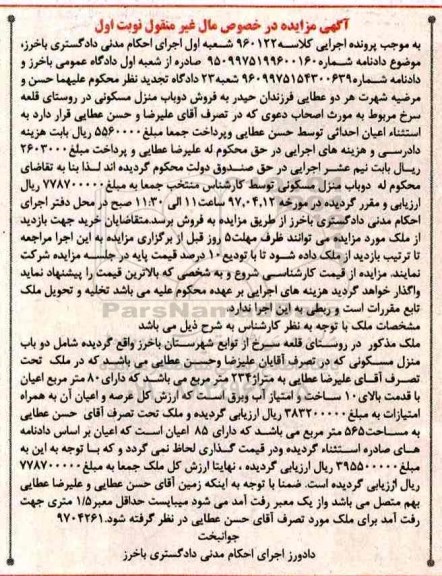 آگهی مزایده در خصوص مال غیر منقول نوبت اول
به موجب پرونده اجرایی کلاسه ۹۶۰۱۲۲ شعبه اول اجرای احکام مدنی دادگستری باخرز،
موضوع دادنامه شماره ۹۵۰۹۹۷۵۱۹۹۶۰۰۱۶۰ صادره از شعبه اول دادگاه عمومی باخرز و
دادنامه شماره ۹۶۰۹۹۷۵۱۵۴۳۰۰۶۳۹ شعبه ۲۳ دادگاه تجدید نظر محکوم علیهما حسن و
مرضیه شهرت هر دو عطایی فرزندان حیدر به فروش دوباب منزل مسکونی در روستای قلعه
سرخ مربوط به مورث اصحاب دعوی که در تصرف آقای علیرضا و حسن عطایی قرار دارد به
استثناء اعیان احداثی توسط حسن عطایی وپرداخت جمعا مبلغ ۵۵۶۰۰۰۰ ریال بابت هزینه
دادرسی و هزینه های اجرایی در حق محکوم له علیرضا عطایی و پرداخت مبلغ ۲۶۰۳۰۰۰
ریال بابت نیم عشر اجرایی در حق صندوق دولت محکوم گردیده اند لذا بنا به تقاضای
محکوم له دوباب منزل مسکونی توسط کارشناس منتخب جمعا به مبلغ ۷۷۸۷۰۰۰۰۰ ریال
ارزیابی و مقرر گردیده در مورخه ۹۷,۰۴,۱۲ ساعت ۱۱ الی ۱۱:۳۰ صبح در محل دفتر اجرای
احکام مدنی دادگستری باخرز از طریق مزایده به فروش برسد.متقاضایان خرید جهت بازدید
از ملک مورد مزایده می توانند ظرف مهلت ۵ روز قبل از برگزاری مزایده به این اجرا مراجعه
تا ترتیب بازدید از ملک داده شود تا با تودیع ۱۰ درصد قیمت پایه در جلسه مزایده شرکت
نمایند. مزایده از قیمت کارشناسی شروع و به شخصی که بالاترین قیمت را پیشنهاد نماید
واگذار خواهد گردید هزینه های اجرایی بر عهده محکوم علیه می باشد تخلیه و تحویل ملک
تابع مقررات است و ربطی به این اجرا ندارد.
مشخصات ملک با توجه به نظر کارشناس به شرح ذیل می باشد
ملک مذکور در روستای قلعه سرخ از توابع شهرستان باخرز واقع گردیده شامل دو باب
منزل مسکونی که در تصرف آقایان علیرضا وحسن عطایی می باشد که در ملک تحت
تصرف آقای علیرضا عطایی به متراژ ۲۳۴ متر مربع می باشد که دارای ۸۰ متر مربع اعیان
با قدمت بالای ۱۰ ساخت و امتیاز آب وبرق است که ارزش کل عرصه و اعیان آن به همراه
امتیازات به مبلغ ۳۸۳۲۰۰۰۰۰ ریال ارزیابی گردیده و ملک تحت تصرف آقای حسن عطایی
به مساحت ۵۶۵ متر مربع می باشد که دارای ۸۵ اعیان است که اعیان بر اساس دادنامه
های صادره استثناء گردیده ودر قیمت گذاری لحاظ نمی گردد و که با توجه به این به
مبلغ ۳۹۵۵۰۰۰۰۰ ریال ارزیابی گردیده ، نهایتا ارزش کل ملک جمعا به مبلغ ۷۷۸۷۰۰۰۰۰
ریال ارزیابی گردیده است. ضمنا با توجه به اینکه زمین آقای حسن عطایی و علیرضا عطایی
بهم متصل می باشد واز یک معبر رفت آمد می شود میبایست حداقل معبر ۱/۵ متری جهت
رفت آمد برای ملک مورد تصرف آقای حسن عطایی در نظر گرفته شود. ۹۷۰۴۲۶۱
جوانبخت
دادورز اجرای احکام مدنی دادگستری باخرز